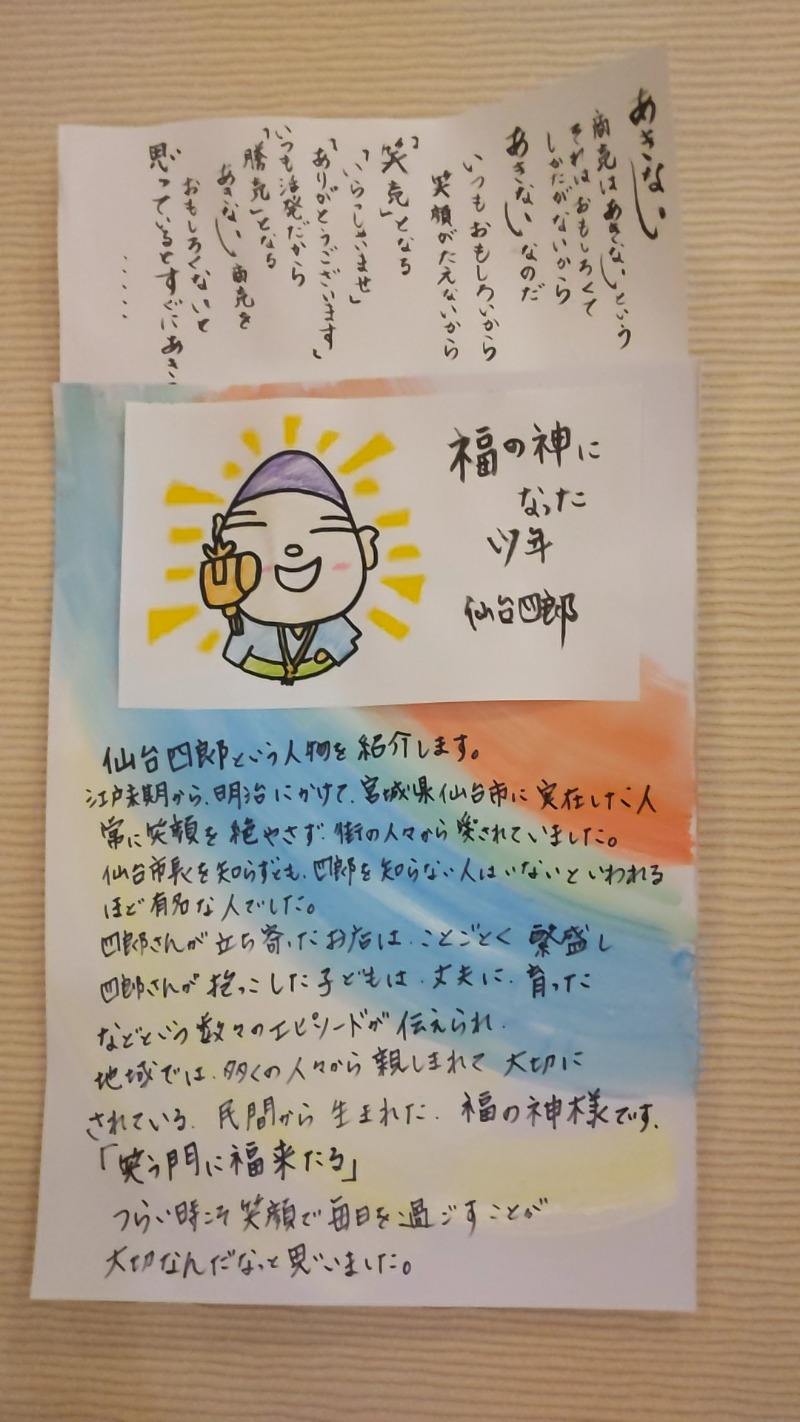 あきない
商売はあきないという
それはおもしろくて
しかたがないから
あきないなのだ
いつもおもしろいから
笑顔がたえないから
「笑売」となる
「いらっしゃいませ」
「ありがとうございます」
いつも活発だから
「勝売」となる
あきない商売を
おもしろくないと
思っているとすぐにあき
.....
福の神に
なった
少年
仙台四郎
仙台四郎という人物を紹介します。
江戸末期から、明治にかけて、宮城県仙台市に実在した人
常に笑顔を絶やさず、街の人々から愛されていました。
仙台市長を知らずとも、四郎を知らない人はいないといわれる
ほど有名な人でした。
四郎さんが立ち寄ったお店は、ことごとく繁盛し
四郎さんが抱っこした子どもは、丈夫に、育った
などという数々のエピソードが伝えられ、
地域では、多くの人々から親しまれて大切に
されている、民間から生まれた、福の神様です。
「笑う門に福来たる」
つらい時こそ笑顔で毎日を過ごすことが
大切なんだなっと思いました。